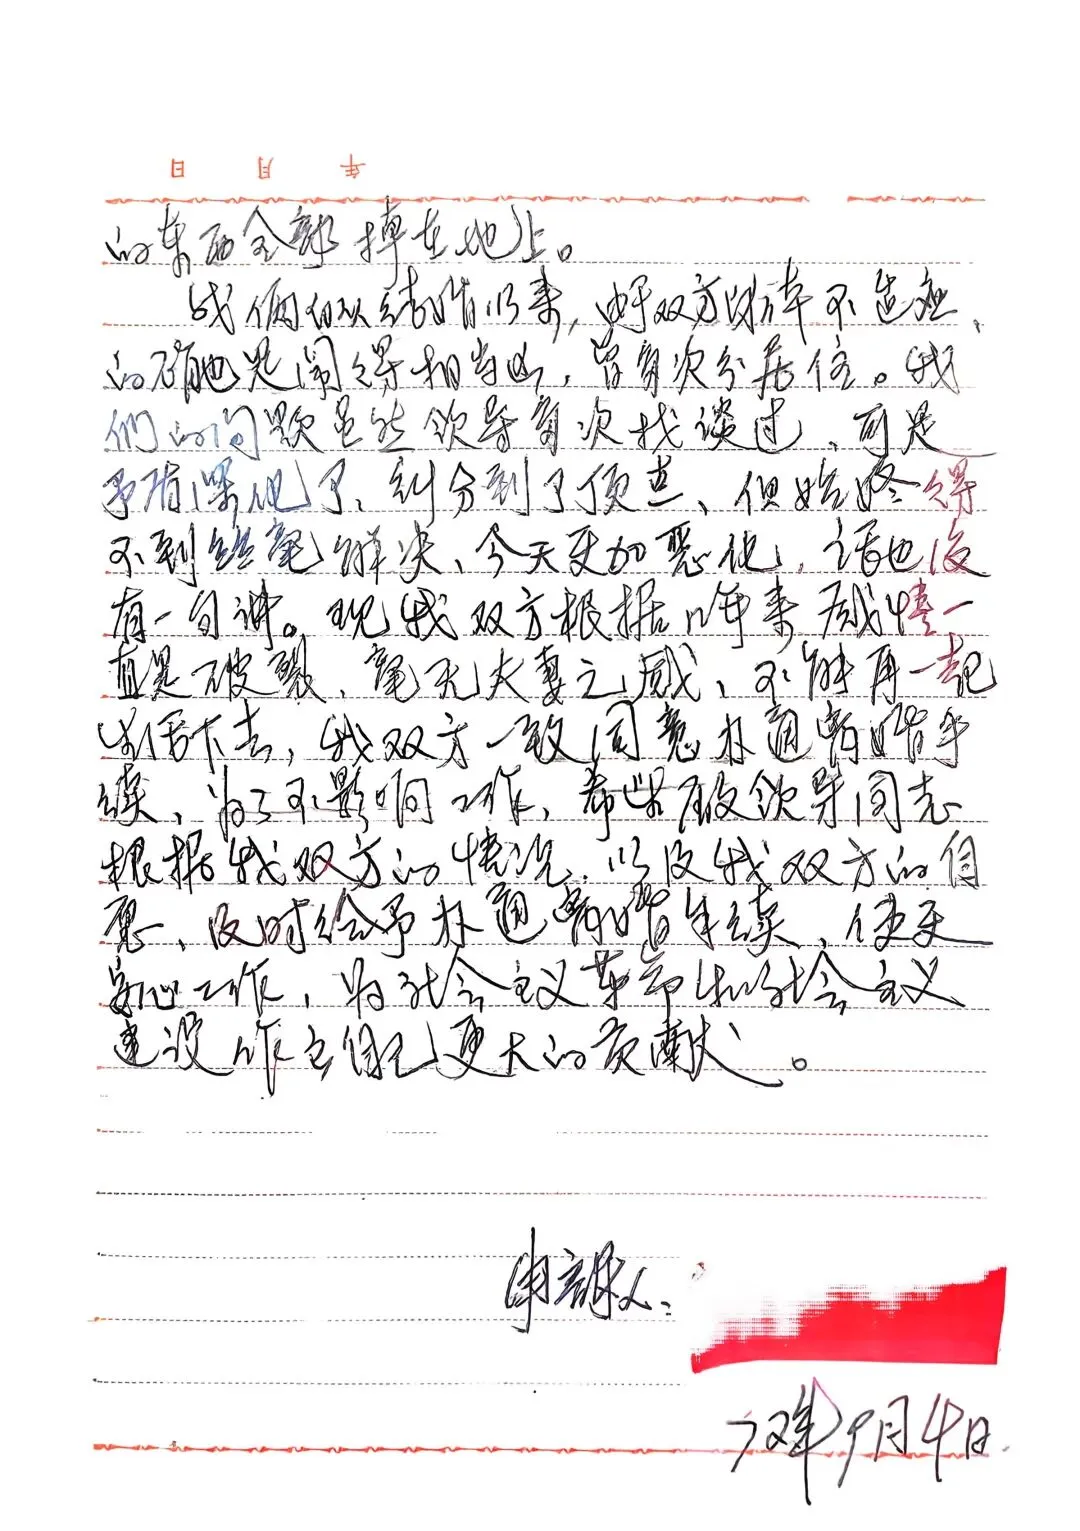 日 月 年
的东西全部掉在地上。
我俩自从结婚以来，由于双方的性不适应，
的确也是闹得相当凶，曾多次分居住。我
们的问题虽然领导多次找谈过，可是
矛盾深化了，纠纷到了顶点，但始终得
不到丝毫解决，今天更加恶化，话也没
有一句讲。现我双方根据几年来感情一
直是破裂，毫无夫妻之感，不能再一起
生活下去，我双方一致同意办通离婚手
续，为了不影响工作，希望政领导同志
根据我双方的情况，以及我双方的自
愿，及时给予办通离婚手续，使更
安心工作，为社会主义革命和社会主义
建设作出自己更大的贡献。
申请人：
年9月4日